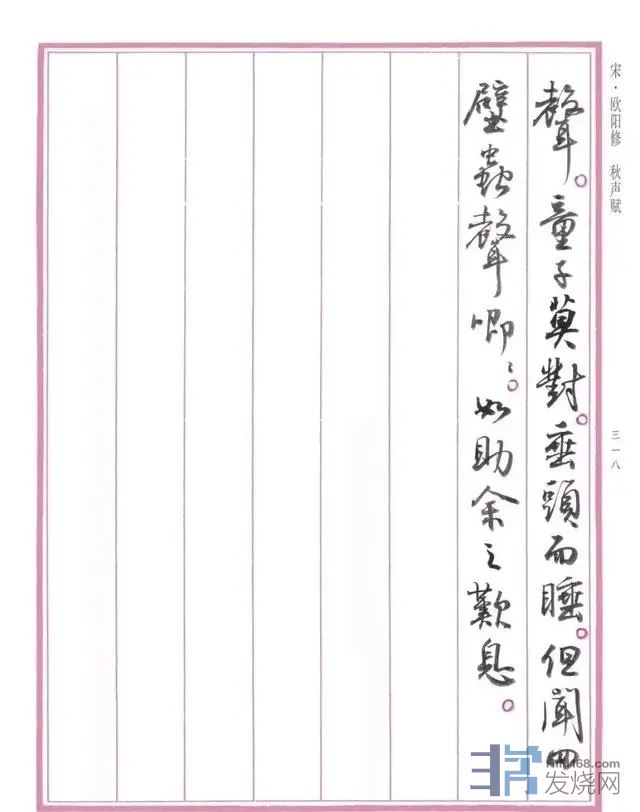 宋·欧阳修 秋声赋
三一八
聲。童子莫對。垂頭而睡。但聞四
壁蟲聲唧〻。如助余之歎息。
发烧网